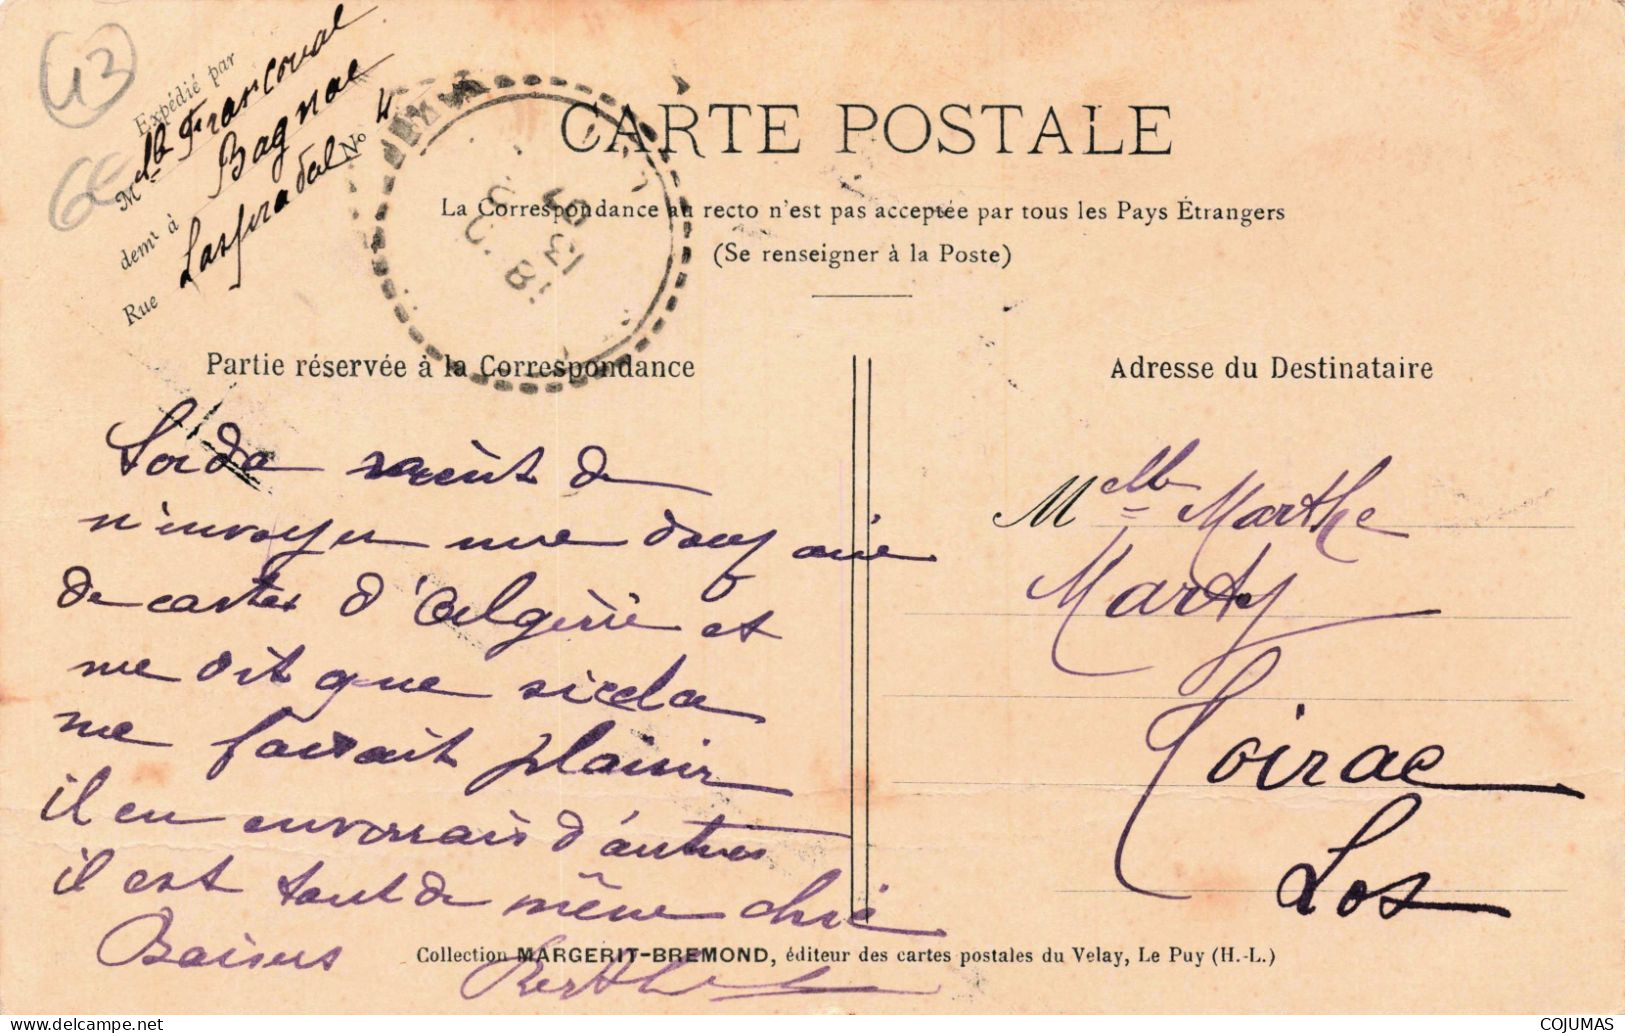 43
6€
Expédié par
Mlle Francoual
demt à Bagnac
Rue Laspradal No 4
CARTE POSTALE
La Correspondance au recto n'est pas acceptée par tous les Pays Étrangers
(Se renseigner à la Poste)
Partie réservée à la Correspondance
vient de
n'envoyer une douzaine
de cartes d'Algérie et
me dit que si cela
me faisait plaisir
il en enverrais d'autres
il est tout de même chic
Baisers Berthe
Adresse du Destinataire
Melle Marthe
Marty
Toirac
Lot
Collection MARGERIT-BREMOND, éditeur des cartes postales du Velay, Le Puy (H.-L.)
COJUMAS